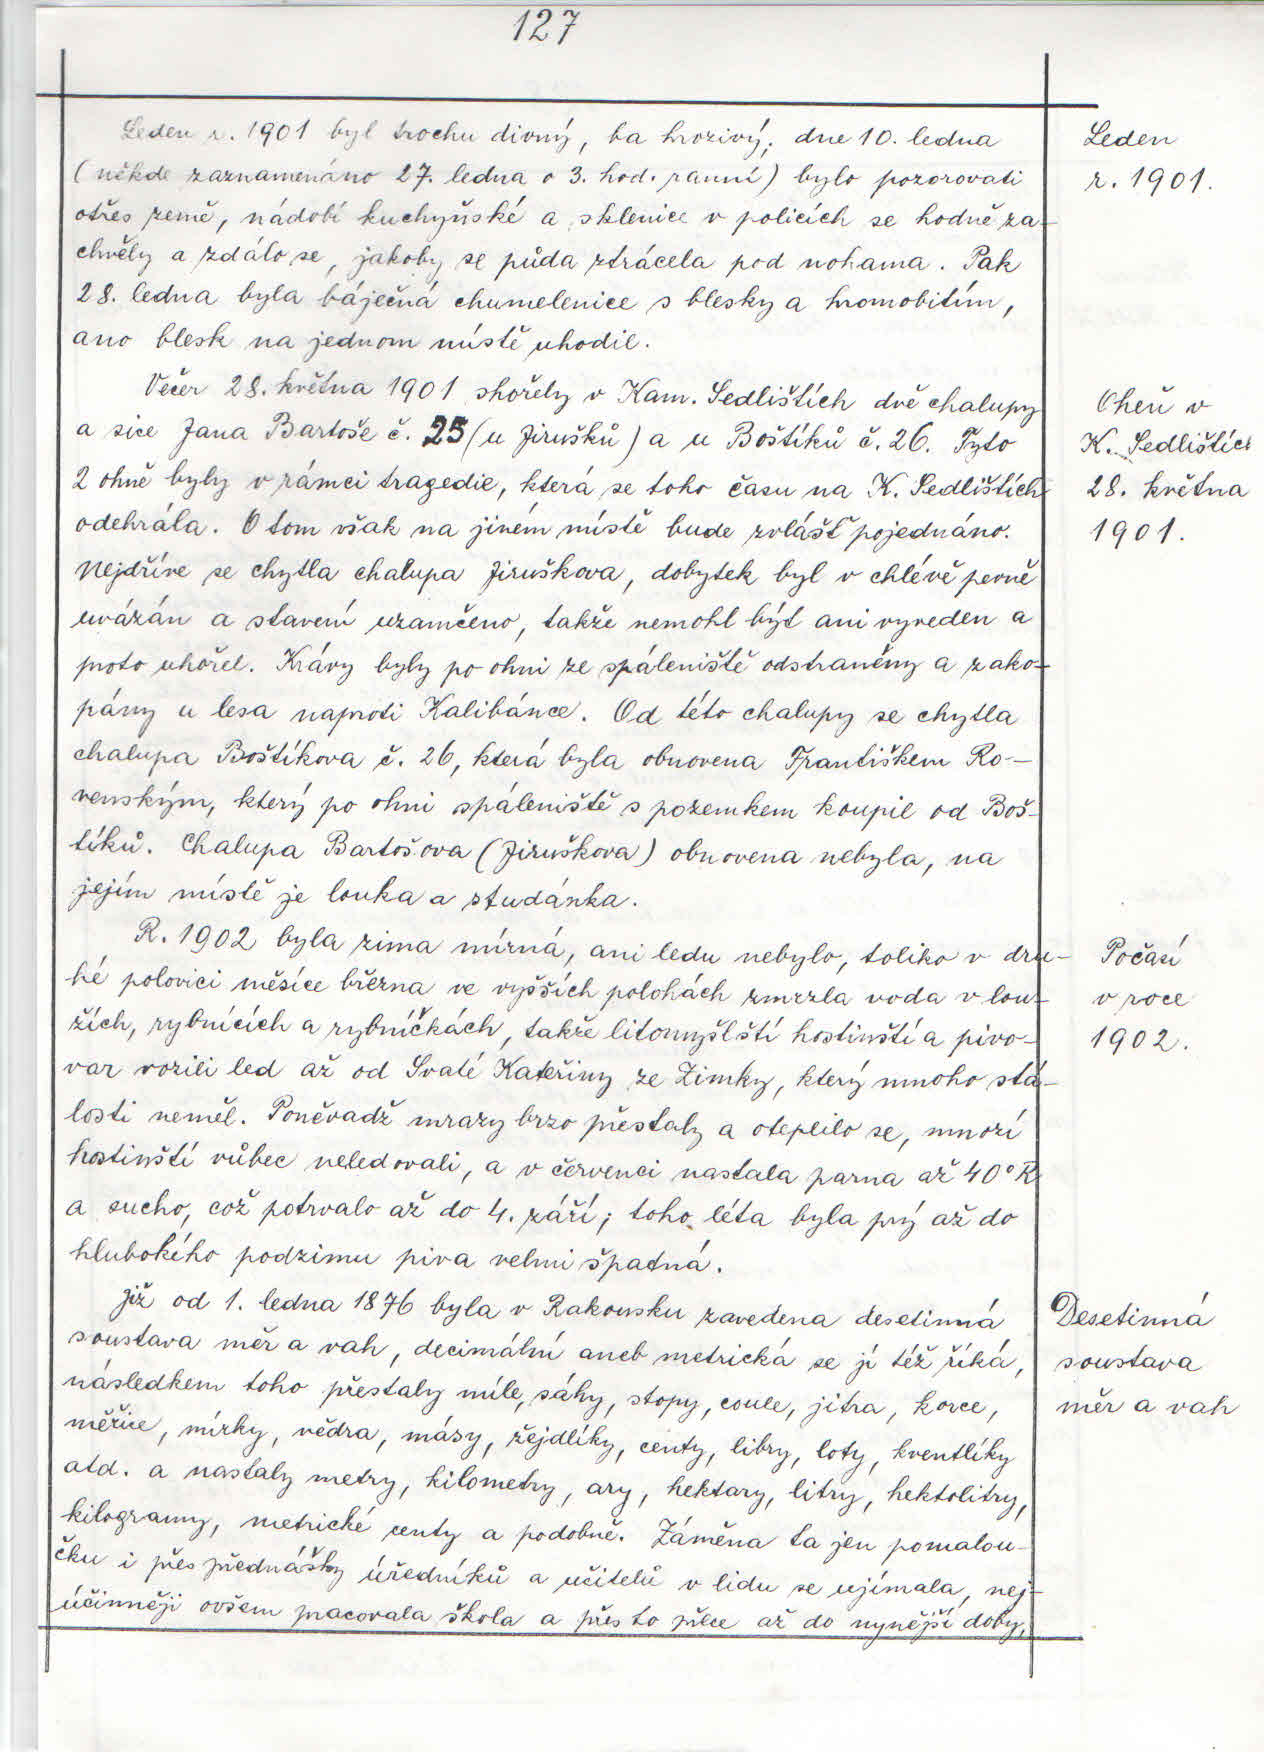 127
Leden r. 1901 byl trochu divný, ba hrozivý; dne 10. ledna
(někde zaznamenáno 27. ledna o 3. hod. ranní) bylo pozorovati
otřes země, nádobí kuchyňské a sklenice v policích se hodně za-
chvěly a zdálo se, jakoby se půda ztrácela pod nohama. Pak
28. ledna byla báječná chumelenice s blesky a hromobitím,
ano blesk na jednom místě uhodil.
Leden
r. 1901.
Večer 28. května 1901 shořely v Kam. Sedlištích dvě chalupy
a sice Jana Bartoše č. 25 (u Jirušků) a u Boštíků č. 26. Tyto
2 ohně byly v rámci tragedie, která se toho času na K. Sedlištích
odehrála. O tom však na jiném místě bude zvlášť pojednáno.
Nejdříve se chytla chalupa Jiruškova, dobytek byl v chlévě pevně
uvázán a stavení uzamčeno, takže nemohl být ani vyveden a
proto uhořel. Krávy byly po ohni ze spáleniště odstraněny a zako-
pány u lesa naproti Kalibánce. Od této chalupy se chytla
chalupa Boštíkova č. 26, která byla obnovena Františkem Ro-
venským, který po ohni spáleniště s pozemkem koupil od Boš-
tíků. Chalupa Bartošova (Jiruškova) obnovena nebyla, na
jejím místě je louka a studánka.
Oheň v
K. Sedlištích
28. května
1901.
R. 1902 byla zima mírná, ani ledu nebylo, toliko v dru-
hé polovici měsíce března ve vyšších polohách zmrzla voda v lou-
žích, rybnících a rybníčkách, takže litomyšlští hostinští a pivo-
var vozili led až od Svaté Kateřiny ze Zimky, který mnoho stá-
losti neměl. Poněvadž mrazy brzo přestaly a oteplilo se, mnozí
hostinští vůbec neledovali, a v červenci nastala parna až 40° R
a sucho, což potrvalo až do 4. září; toho léta byla prý až do
hlubokého podzimu piva velmi špatná.
Počasí
v roce
1902.
Již od 1. ledna 1876 byla v Rakousku zavedena desetinná
soustava měr a vah, decimální aneb metrická se jí též říká,
následkem toho přestaly míle, sáhy, stopy, coule, jitra, korce,
měřice, mírky, vědra, másy, žejdlíky, centy, libry, loty, kventlíky
atd. a nastaly metry, kilometry, ary, hektary, litry, hektolitry,
kilogramy, metrické centy a podobně. Záměna ta jen pomalou-
čku i přes přednášky úředníků a učitelů v lidu se ujímala, nej-
účinněji ovšem pracovala škola a přes to přece až do nynější doby,
Desetinná
soustava
měr a vah